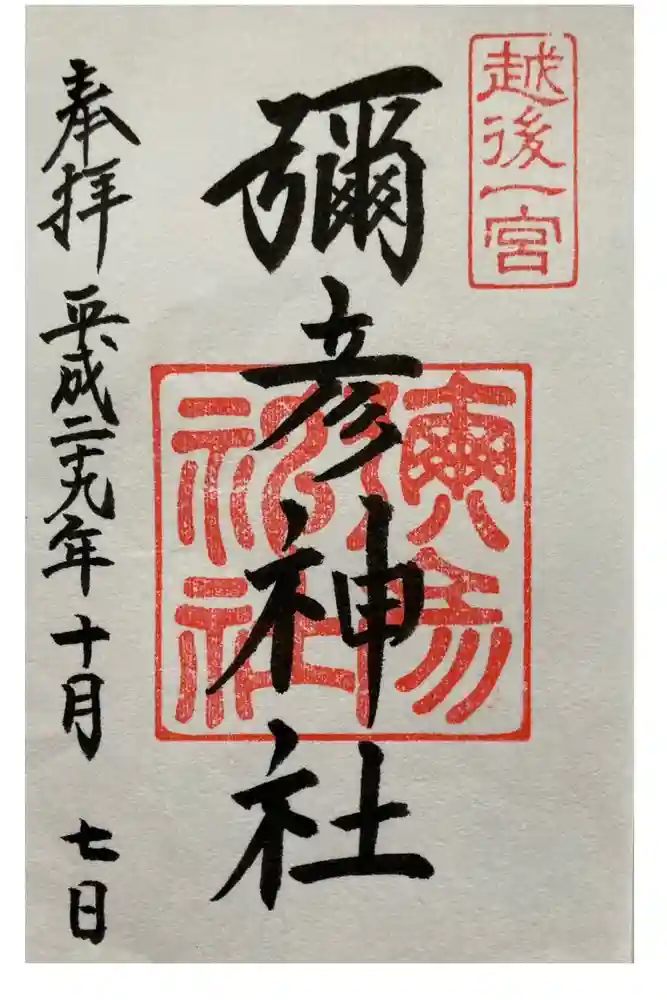 越後一宮
彌彦神社
彌彦神社
奉拝 平成二十九年 十月 七日